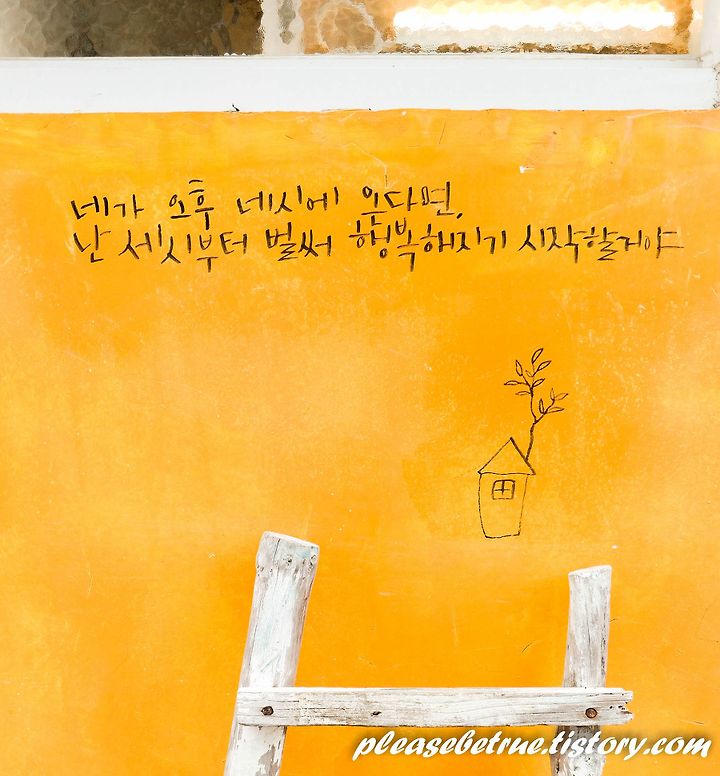 네가 오후 네시에 온다면,
난 세시부터 벌써 행복해지기 시작할거야
pleasebetrue.tistory.com